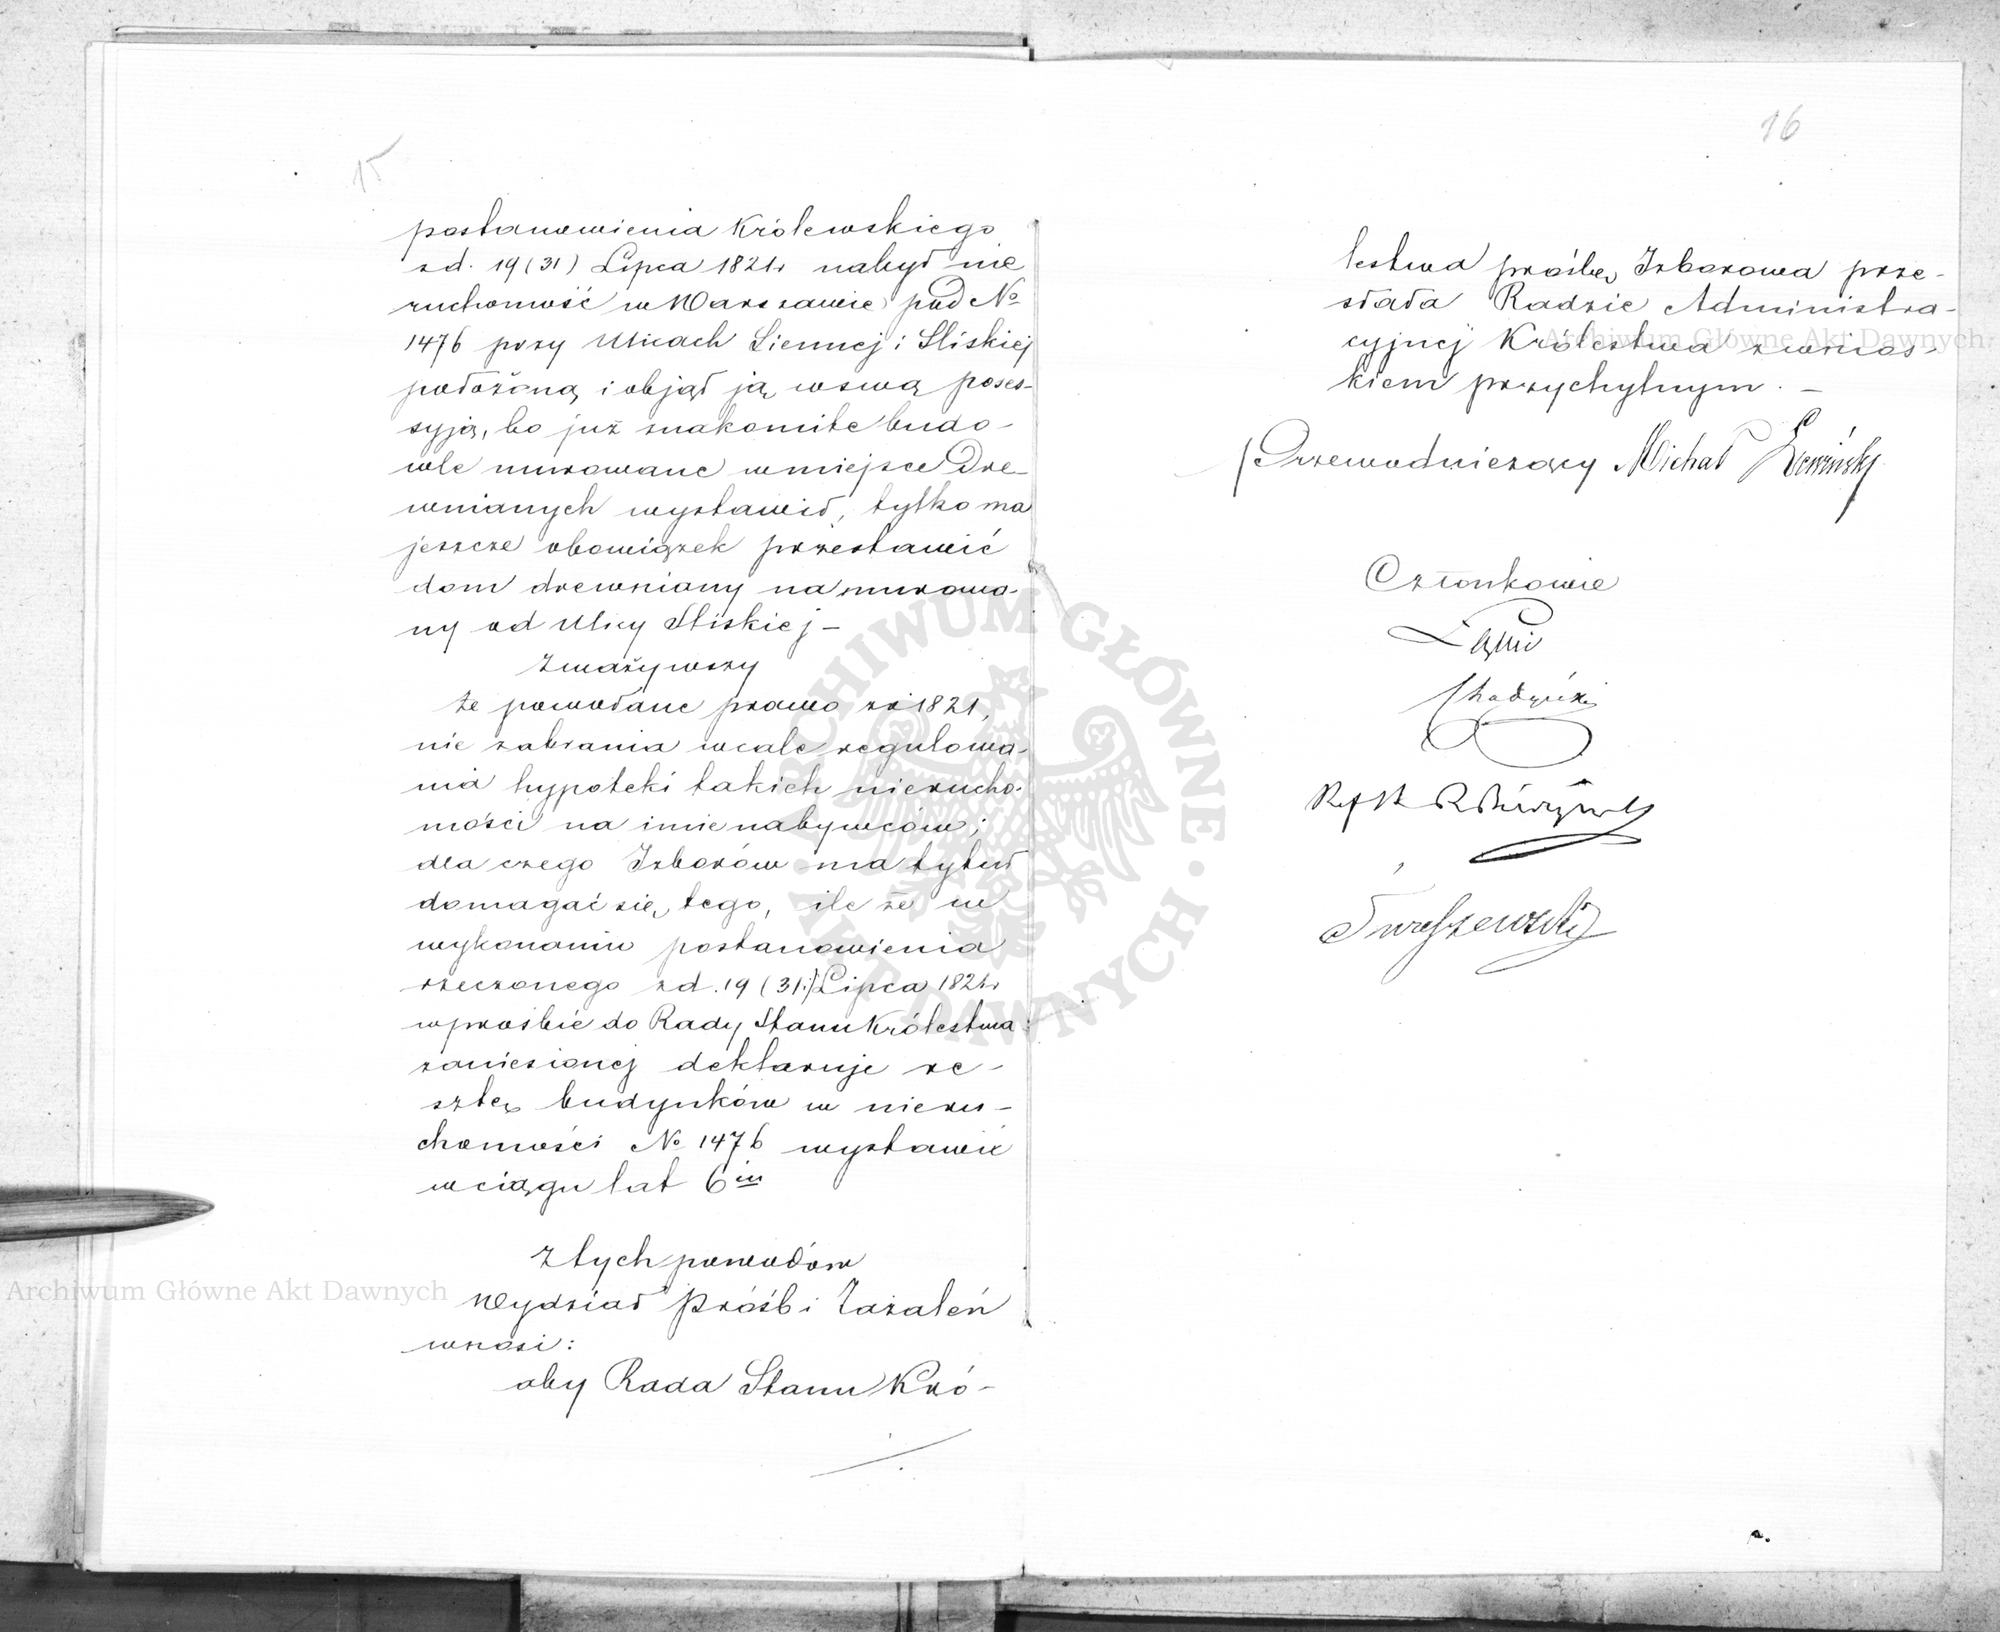 15
postanowienia Królewskiego
z d. 19 (31) Lipca 1821 r nabył nie
ruchomość w Warszawie pod No
1476 przy Ulicach Siennej i Sliskiej
położoną i objął ją w swą poses-
syją, bo już znakomite budo-
wle murowane w miejsce Dre-
wnianych wystawił, tylko ma
jeszcze obowiązek przestawić
dom drewniany na murowa-
ny od Ulicy Sliskiej –
Zważywszy
że powołane prawo z r 1821,
nie zabrania wcale regulowa-
nia hypoteki takich nierucho-
mości na imie nabywców;
dla czego Izborów ma tytuł
domagać się tego, ile że w
wykonaniu postanowienia
rzeczonego z d. 19 (31) Lipca 1821 r
w prośbie do Rady Stanu Królestwa
zaniesionej deklaruje re-
sztę budynków w nieru-
chomości No 1476 wystawić
w ciągu lat 6iu
Z tych powodów
Wydział Próśb i Zażaleń
wnosi:
aby Rada Stanu Kró-
16
lestwa prośbę Izborowa prze-
słała Radzie Administra-
cyjnej Królestwa z wnios-
kiem przychylnym. –
Przewodniczący Michał
Członkowie
Archiwum Główne Akt Dawnych
Archiwum Główne Akt Dawnych
ARCHIWUM GŁÓWNE AKT DAWNYCH